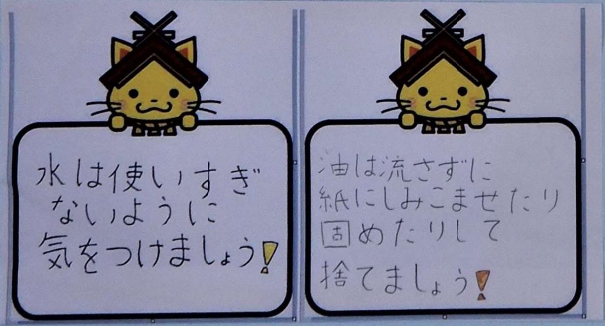 水は使いすぎ
ないように
気をつけましょう!
油は流さずに
紙にしみこませたり
固めたりして
捨てましょう!